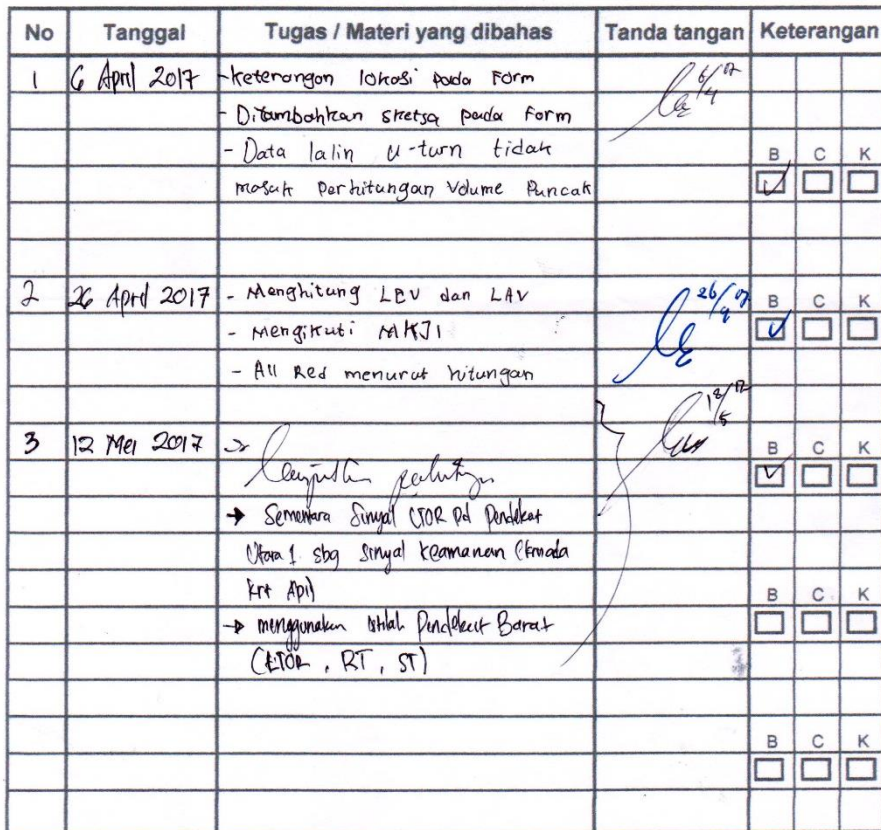 No Tanggal Tugas / Materi yang dibahas Tanda tangan Keterangan
1 6 April 2017 - keterangan lokasi pada Form 6/4 17
- Ditambahkan sketsa pada Form
- Data lalin u-turn tidak B C K
masuk perhitungan Volume Puncak
2 26 April 2017 - Menghitung LEV dan LAV 26/4 17 B C K
- Mengikuti MKJI
- All Red menurut hitungan
3 12 Mei 2017 B C K
→ Sementara Sinyal LTOR pd Pendekat
Utara 1 sbg Sinyal keamanan
krt Api) B C K
→ menggunakan istilah Pendekat Barat
(LTOR, RT, ST)
B C K